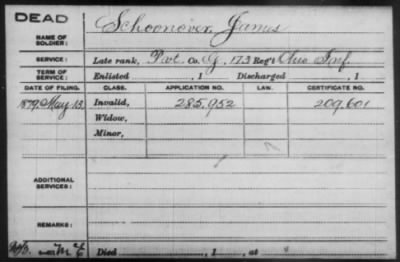 DEAD
NAME OF SOLDIER: Schoonover, James
SERVICE: Late rank, Pvt. Co. G, 173 Reg't Ohio Inf.
TERM OF SERVICE: Enlisted , 1 Discharged , 1
DATE OF FILING. CLASS. APPLICATION NO. LAW. CERTIFICATE NO.
1879, May 13. Invalid, 285,952 209,601
Widow,
Minor,
ADDITIONAL SERVICES:
REMARKS:
Died , 1 , at